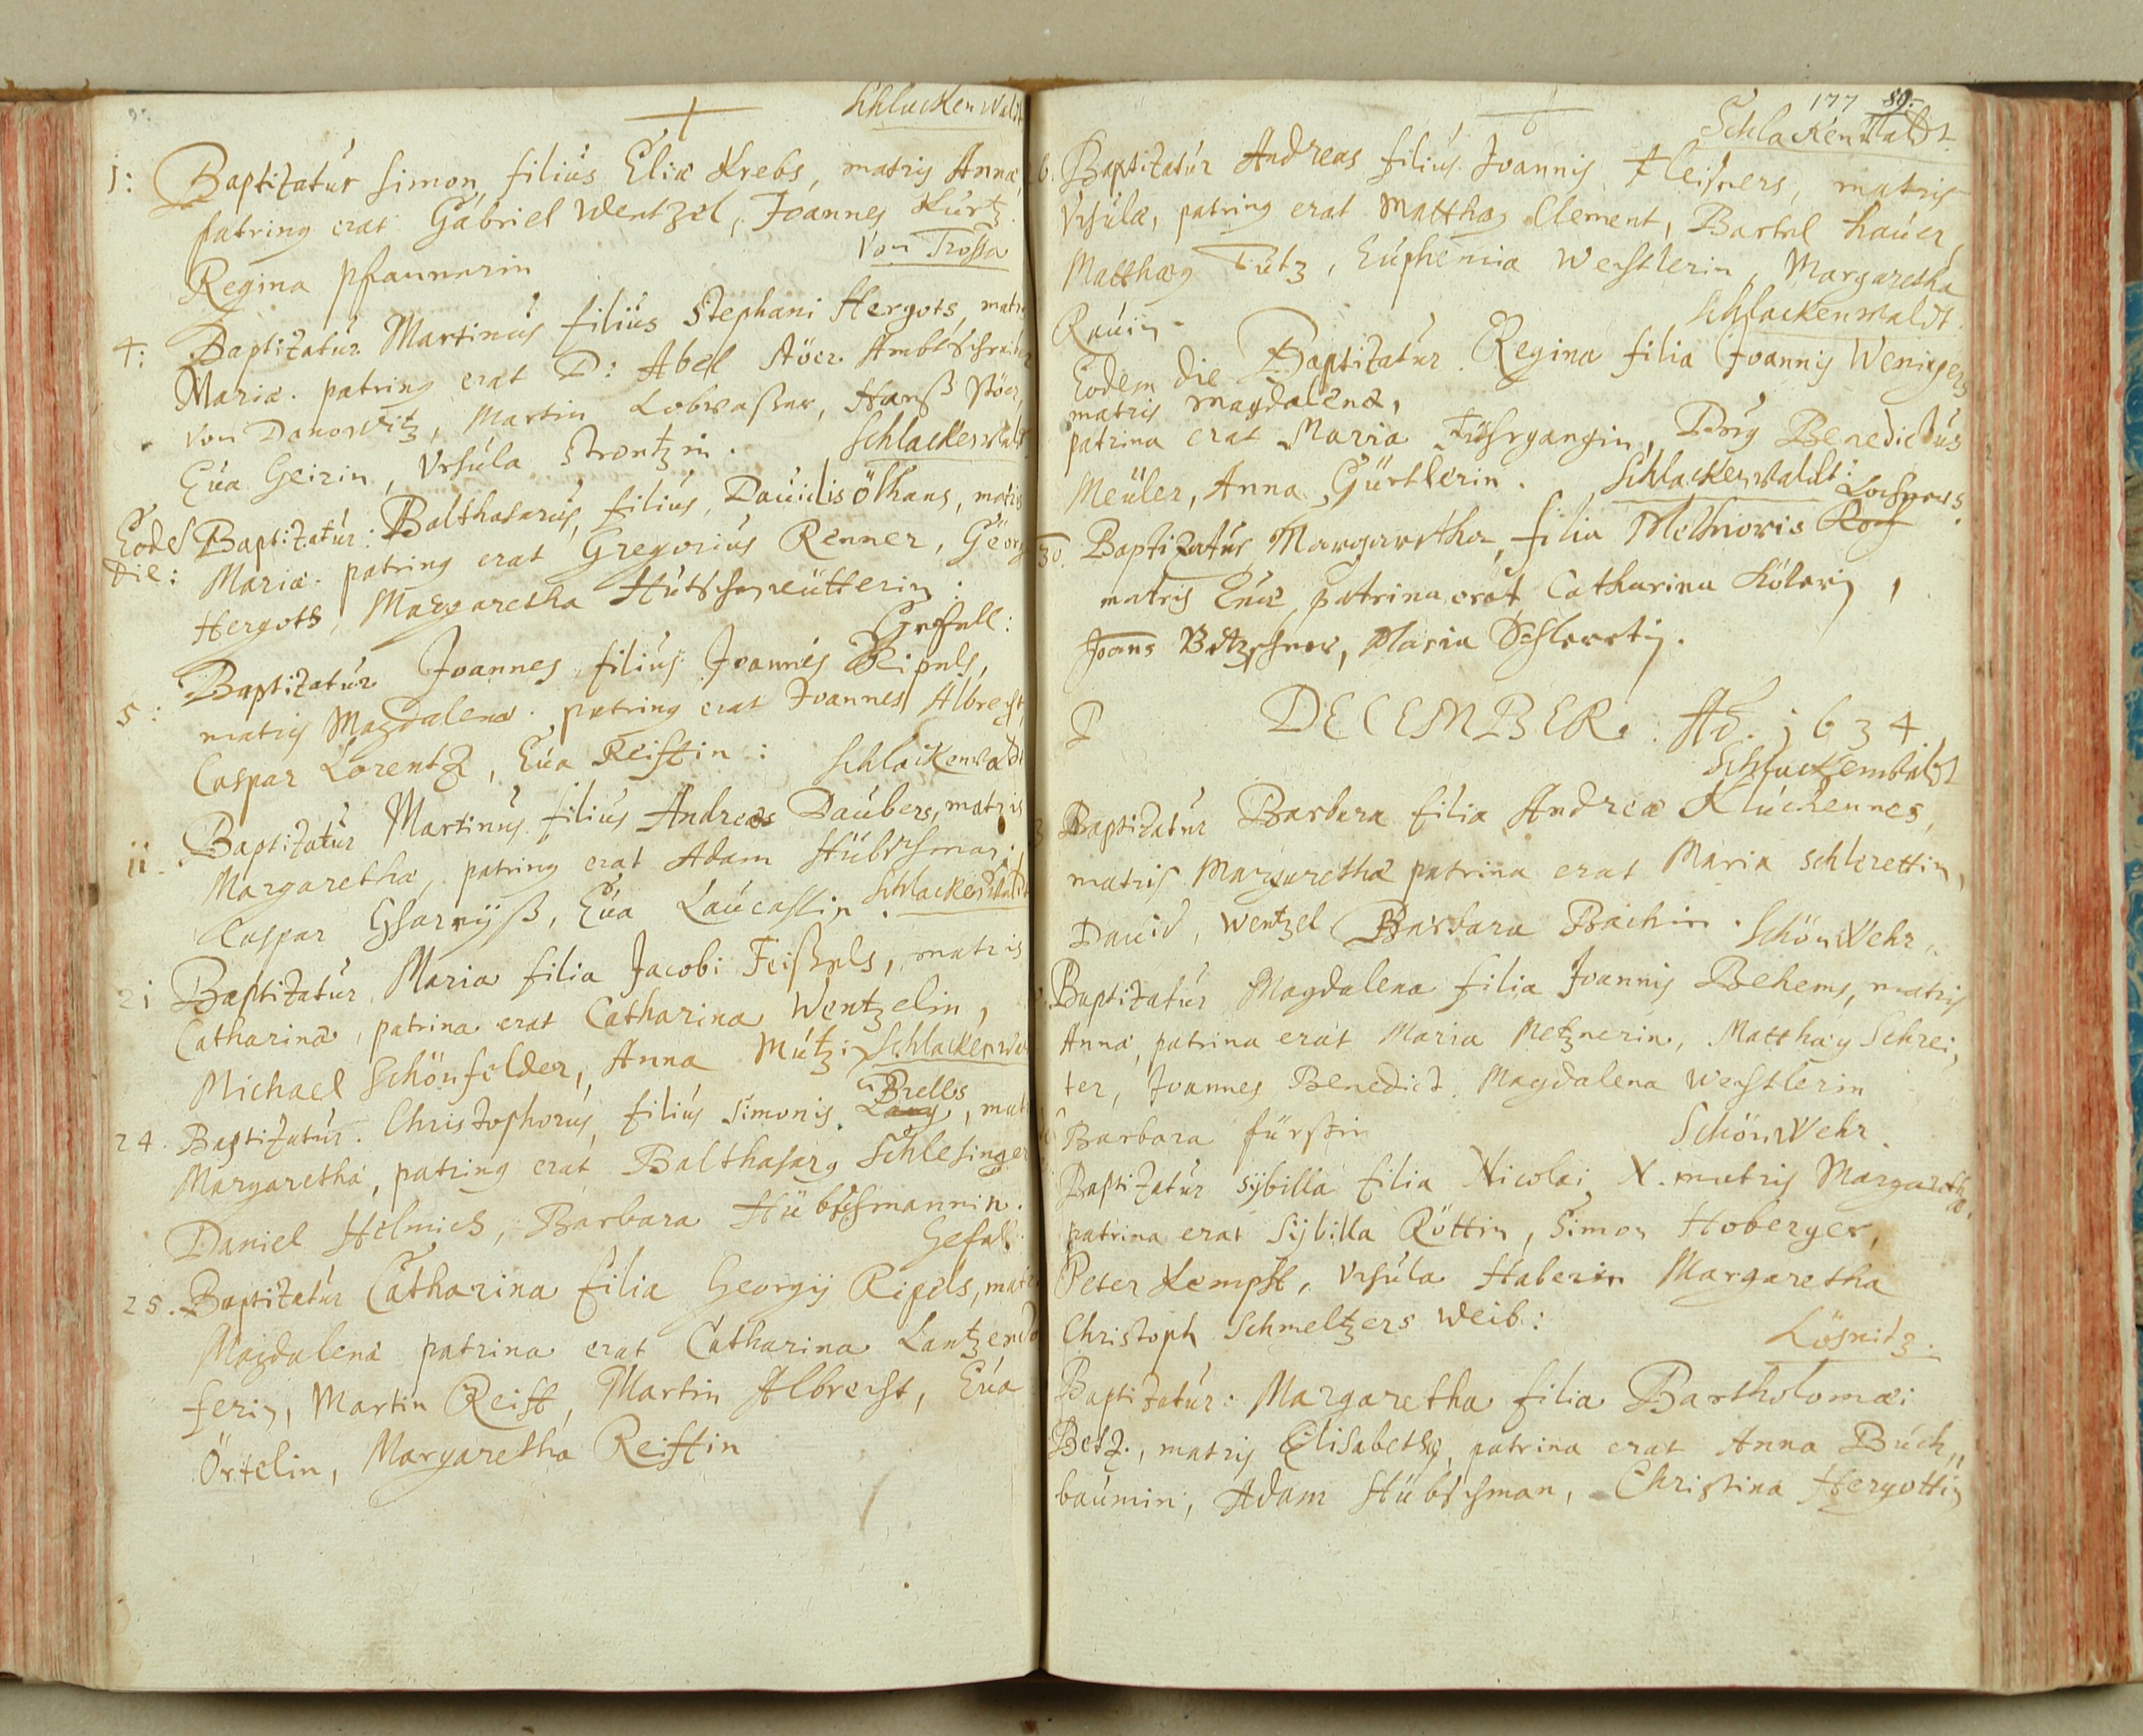 Schlackenwaldt
1: Baptizatur Simon, filius Eliæ Krebs, matris Annæ,
patrinus erat Gabriel Wentzel, Joannes Kurtz.
Regina Pfannerin
Von Trossa
4: Baptizatur Martinus filius Stephani Hergots, matris
Mariæ. patrinus erat D: Abel Stöer Ambtschreiber
von Danowitz, Martin Lobwasser, Hanß Stöer,
Eua Geirin, Vrsula Strontzin.
Schlackenwaldt
Eodem die: Baptizatur: Balthasarus, filius Dauidis ölhans, matris
Mariæ. patrinus erat Gregorius Renner, Geörg
Hergots, Margaretha Hutschenreütterin:
Gefell:
5: Baptizatur Joannes filius Joannis Reipels,
matris Magdalenæ. patrinus erat Joannes Albrecht,
Caspar Lorentz, Eua Reiftin:
Schlackenwaldt
11. Baptizatur Martinus filius Andreæ Daubers, matris
Margarethæ, patrinus erat Adam Hübschman:
Caspar, Eua Laucastin.
Schlackenwaldt
21 Baptizatur Maria filia Jacobi Feißels, matris
Catharinæ, patrina erat Catharina Wentzelin,
Michael Schönfelder, Anna Mützin
Schlackenwa
Brells
24. Baptizatur. Christophorus, filius Simonis Lang, mat
Margarethæ, patrinus erat Balthasarus Schlesinger
Daniel Helmich, Barbara Hübschmannin.
Gefell
25. Baptizatur Catharina filia Georgij Ripels, matr
Magdalenæ patrina erat Catharina Lantzendo
ferin, Martin Reift, Martin Albrecht, Eua
Örtelin, Margaretha Reiftin
177 89.
Schlackenwaldt
26. Baptizatur Andreas filius Joannis Fleisners, matris
Vrsulæ, patrinus erat Matthæus Clement, Bartel hauer,
Matthæus Tutz, Euphemia Wechstlerin, Margaretha
Rauin
Schlackenwaldt.
Eodem die Baptizatur Regina filia Joannis Wenigers
matris Magdalenæ,
patrina erat Maria, Benedictus
Meüler, Anna Gürtlerin.
Schlackenwaldt:
Lochners.
30. Baptizatur Margaretha, filia Melchioris
matris Euæ, patrina erat Catharina Kölerin,
Joans, Maria Schlerrtin.
DECEMBER. Ao. 1634
Schlackenwaldt
3 Baptizatur Barbara filia Andreæ Kluchennes,
matris Margarethæ patrina erat Maria Schlerettin,
Dauid, Wentzel Barbara Bachin.
Schönwehr.
Baptizatur Magdalena filia Joannis Behems, matris
Annæ, patrina erat Maria Metznerin, Matthæus Schrei,
ter, Joannes Benedict, Magdalena Wechstlerin
Barbara fürstin
Schönwehr.
Baptizatur Sÿbilla filia Nicolai N. matris Margarethæ.
patrina erat Sÿbilla Röttin, Simon Hoberger,
Peter Kempft, Vrsula Haberin Margaretha
Christoph Schmeltzers Weib:
Lösnitz.
Baptizatur: Margaretha filia Bartholomæi
Betz., matris Elisabethæ, patrina erat Anna Büch,,
baumin, Adam Hübschman, Christina Hergottin